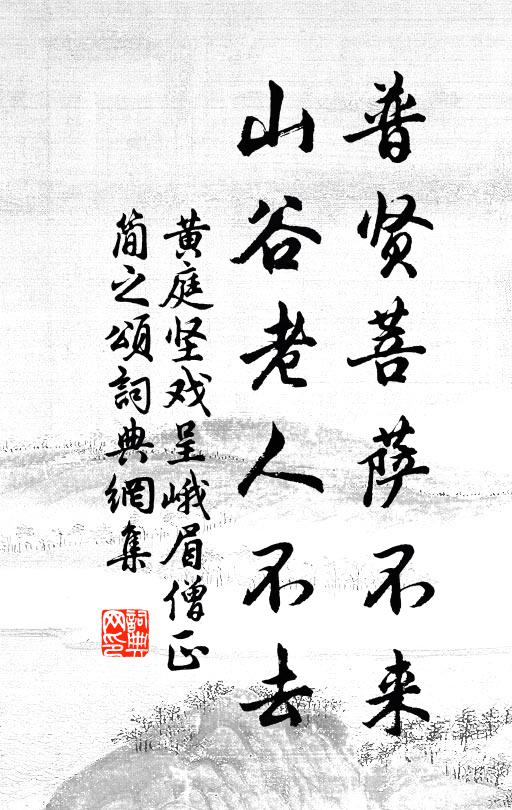 普贤菩萨不来
山谷老人不去
黄庭坚戏呈峨眉僧正
简之頌詞典網集
詞典
网印